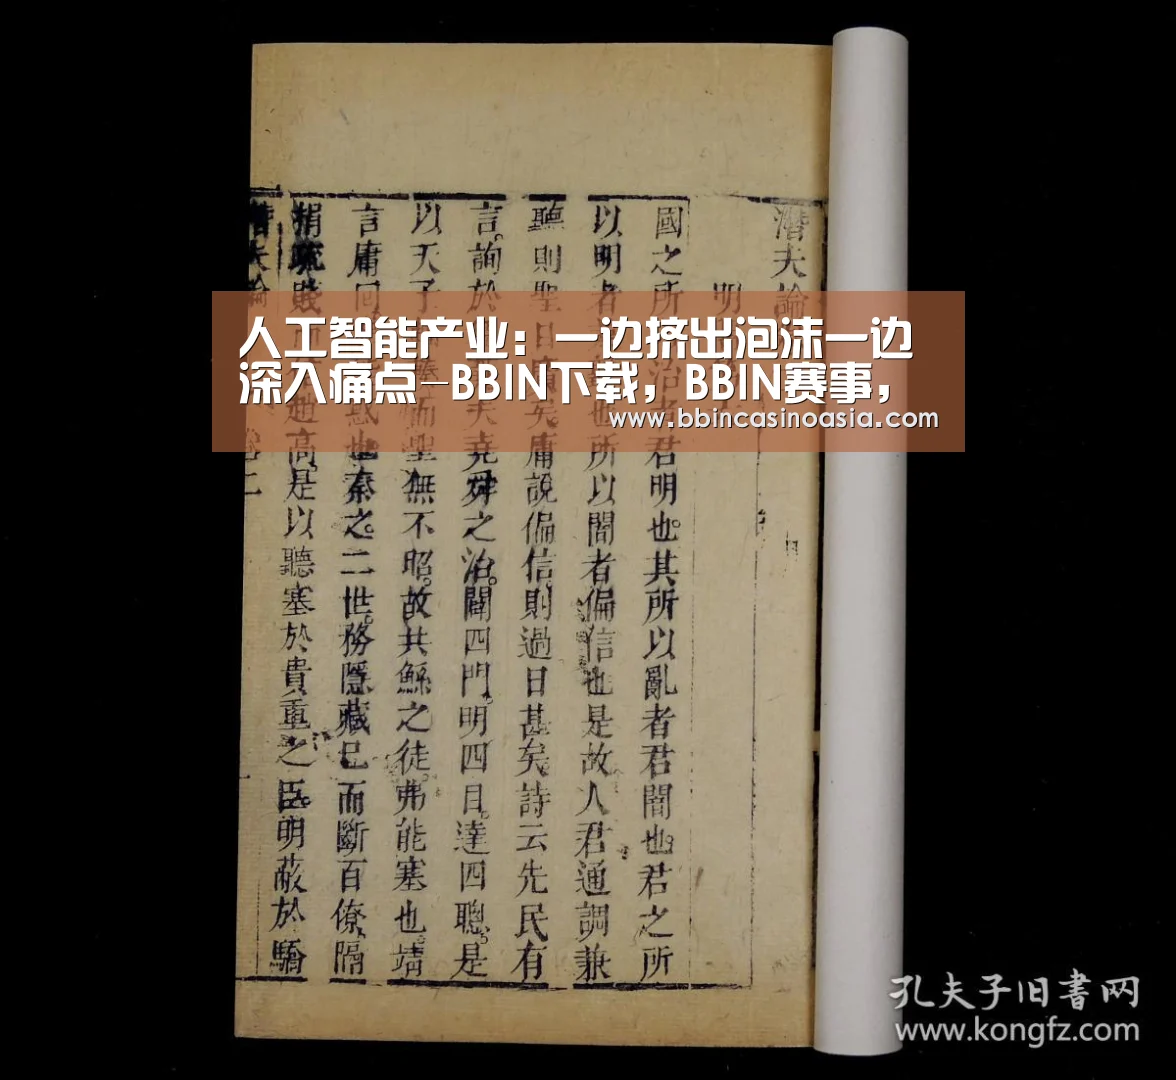 人工智能产业：一边挤出泡沫一边
深入痛点-BBIN下载，BBIN赛事，
www.bbincasinoasia.com
潛夫論
明
國之所治者君明也。其所以亂者君闇也。君之所
以明者也所以闇者偏信也是故人君通調兼
聽則聖日廣矣庸說偏信則過日甚矣詩云先民有
言。詢於夫堯舜之治。闢四門。明四目。達四聰。是
以天子湊而聖無不昭。故共鯀之徒。弗能塞也。靖
言庸回惑也秦之。二世。務隱藏己而斷百僚。隔
捐疏賤趙高是以聽塞於貴重之臣。明蔽於驕
潛夫論
孔夫子旧书网
www.kongfz.com